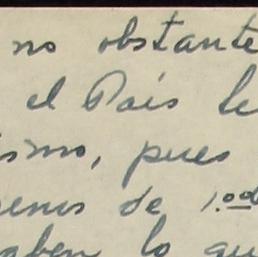 no obstante
el País te
ismo, pues
enos de 1.00
aben lo que